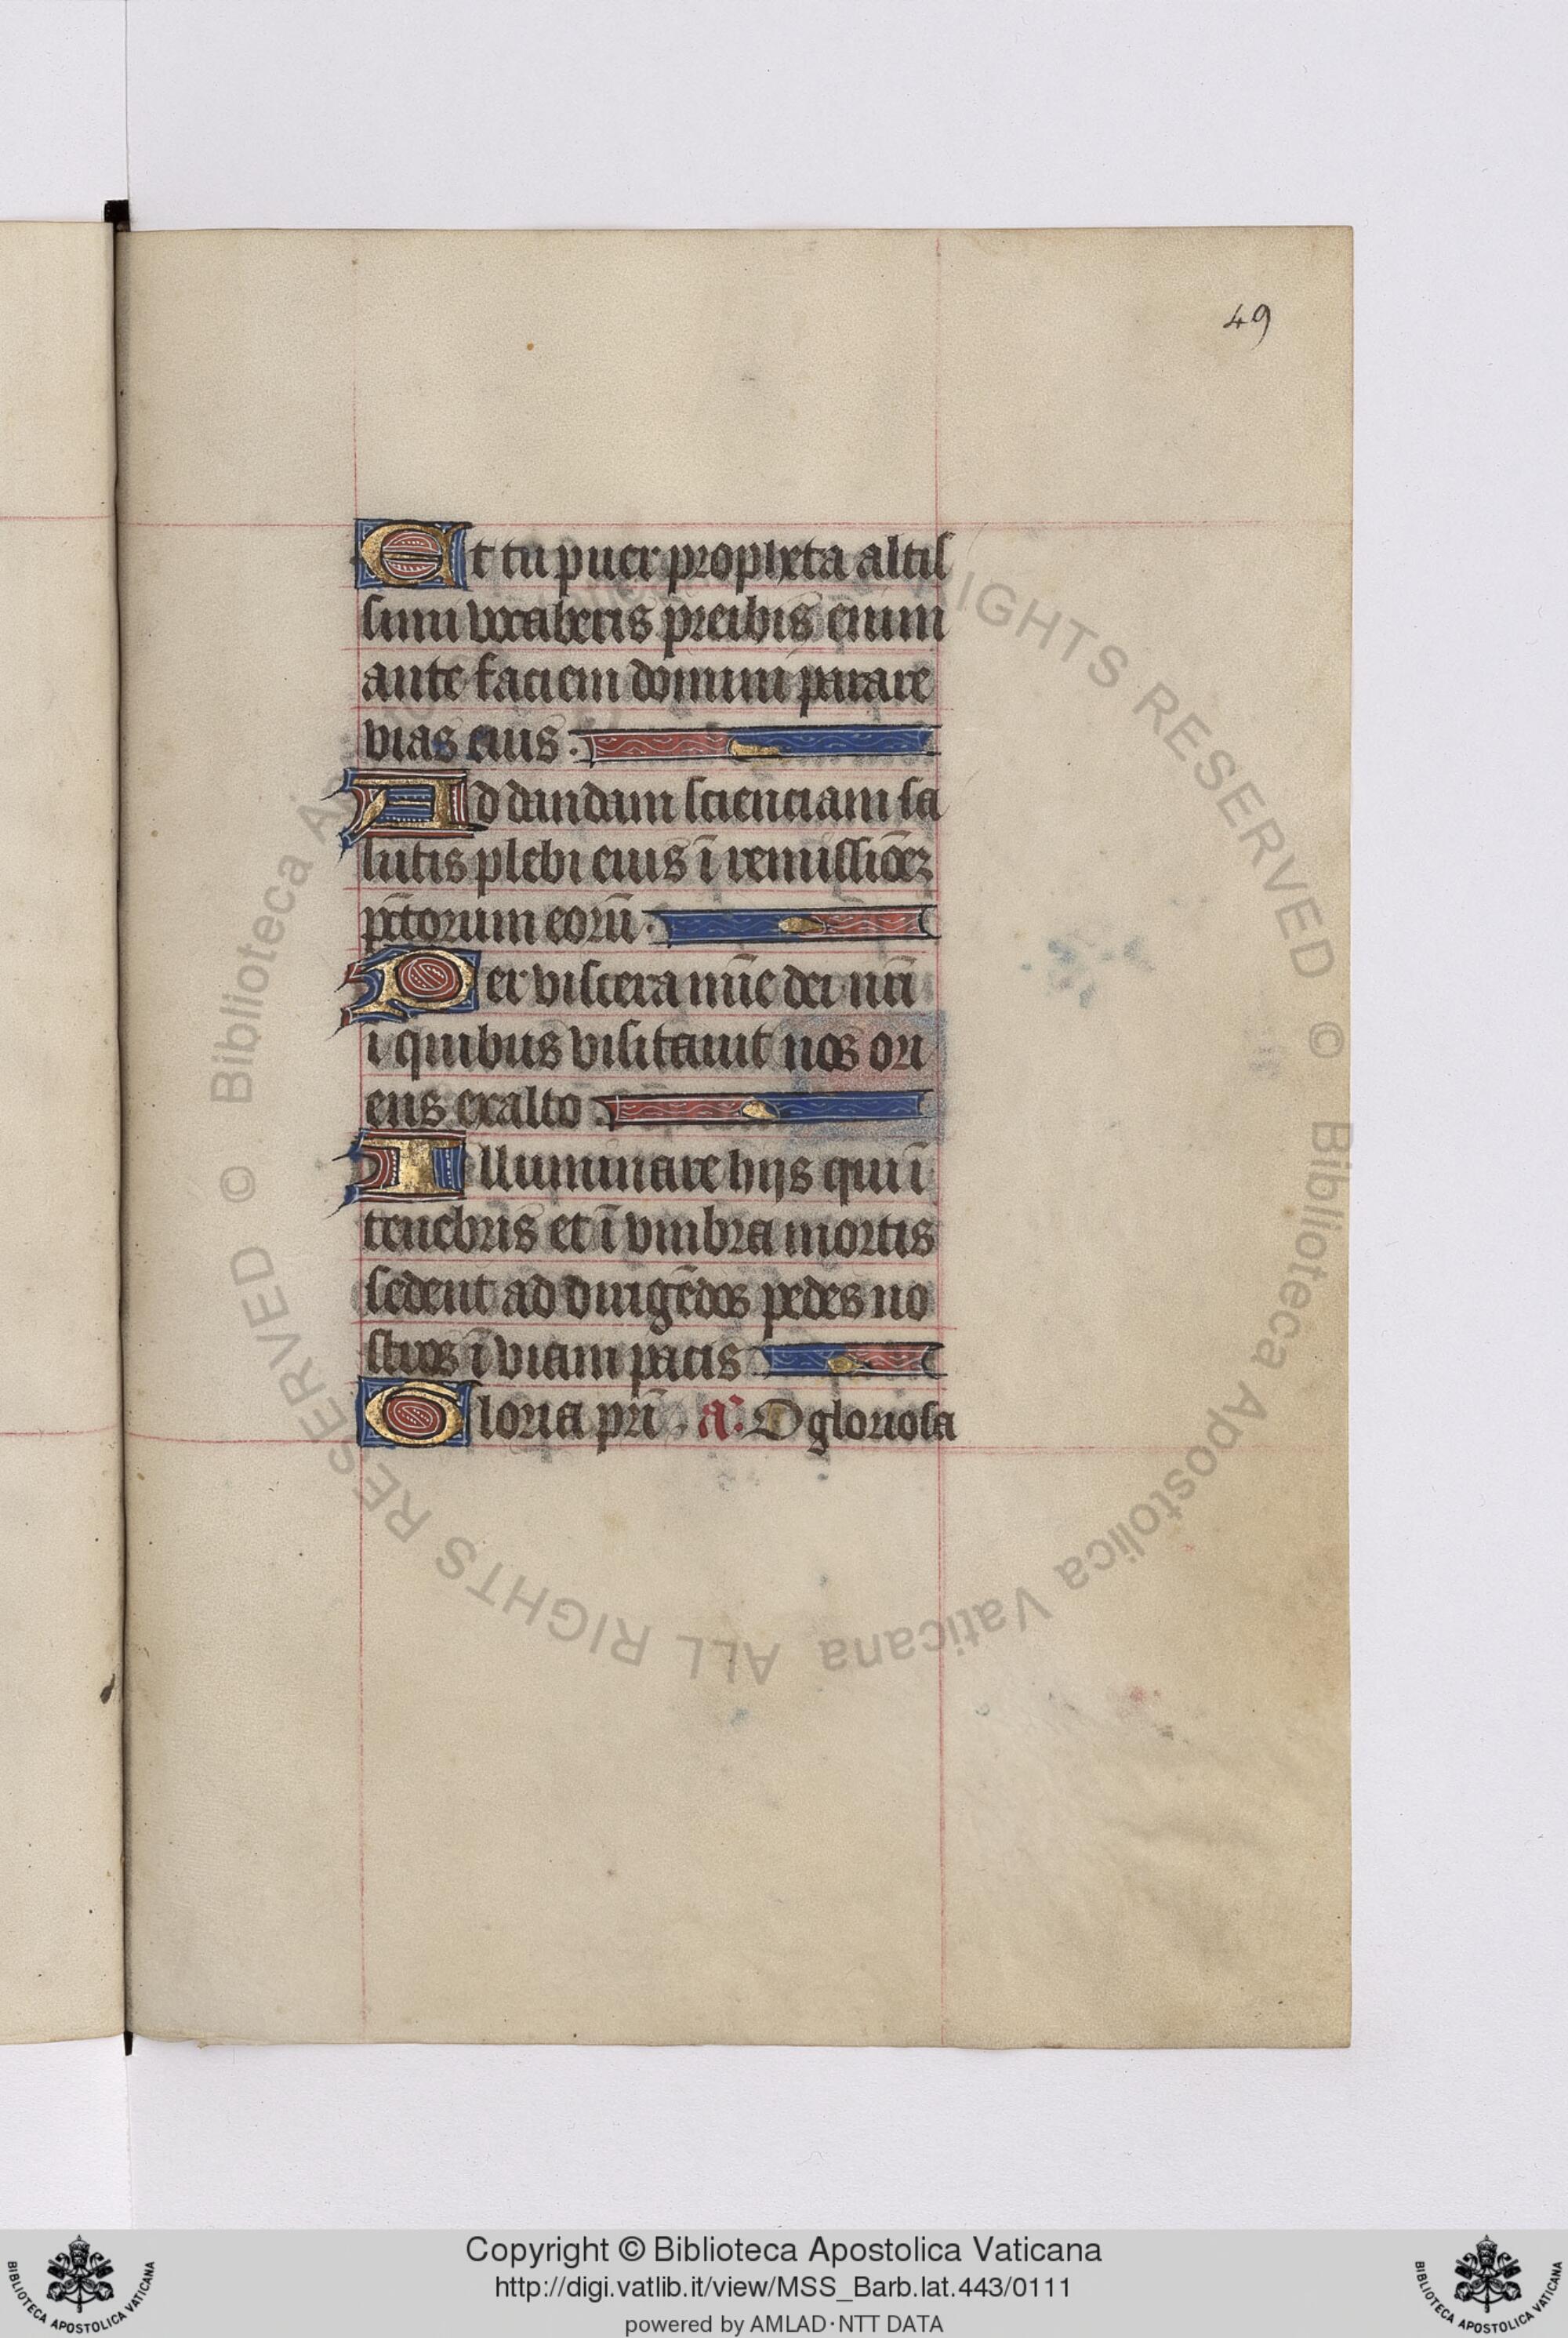 49
Et tu puer propheta altis
simi vocaberis preibis enim
ante faciem domini parare
vias eius .
Ad dandam scienciam sa
lutis plebi eius ī remissiōeʒ
pc̄torum eorū .
Per viscera mīe dei nr̄i
i quibus visitauit nos ori
ens exalto
Illuminare hijs qui ī
tenebris et ī vmbra mortis
sedent ad dirigēdos pedes no
stros ī viam pacis
Gloria pr̄i . a. O gloriosa
© Biblioteca Apostolica Vaticana ALL RIGHTS RESERVED
Copyright © Biblioteca Apostolica Vaticana
http://digi.vatlib.it/view/MSS_Barb.lat.443/0111
powered by AMLAD·NTT DATA
BIBLIOTECA APOSTOLICA VATICANA
BIBLIOTECA APOSTOLICA VATICANA